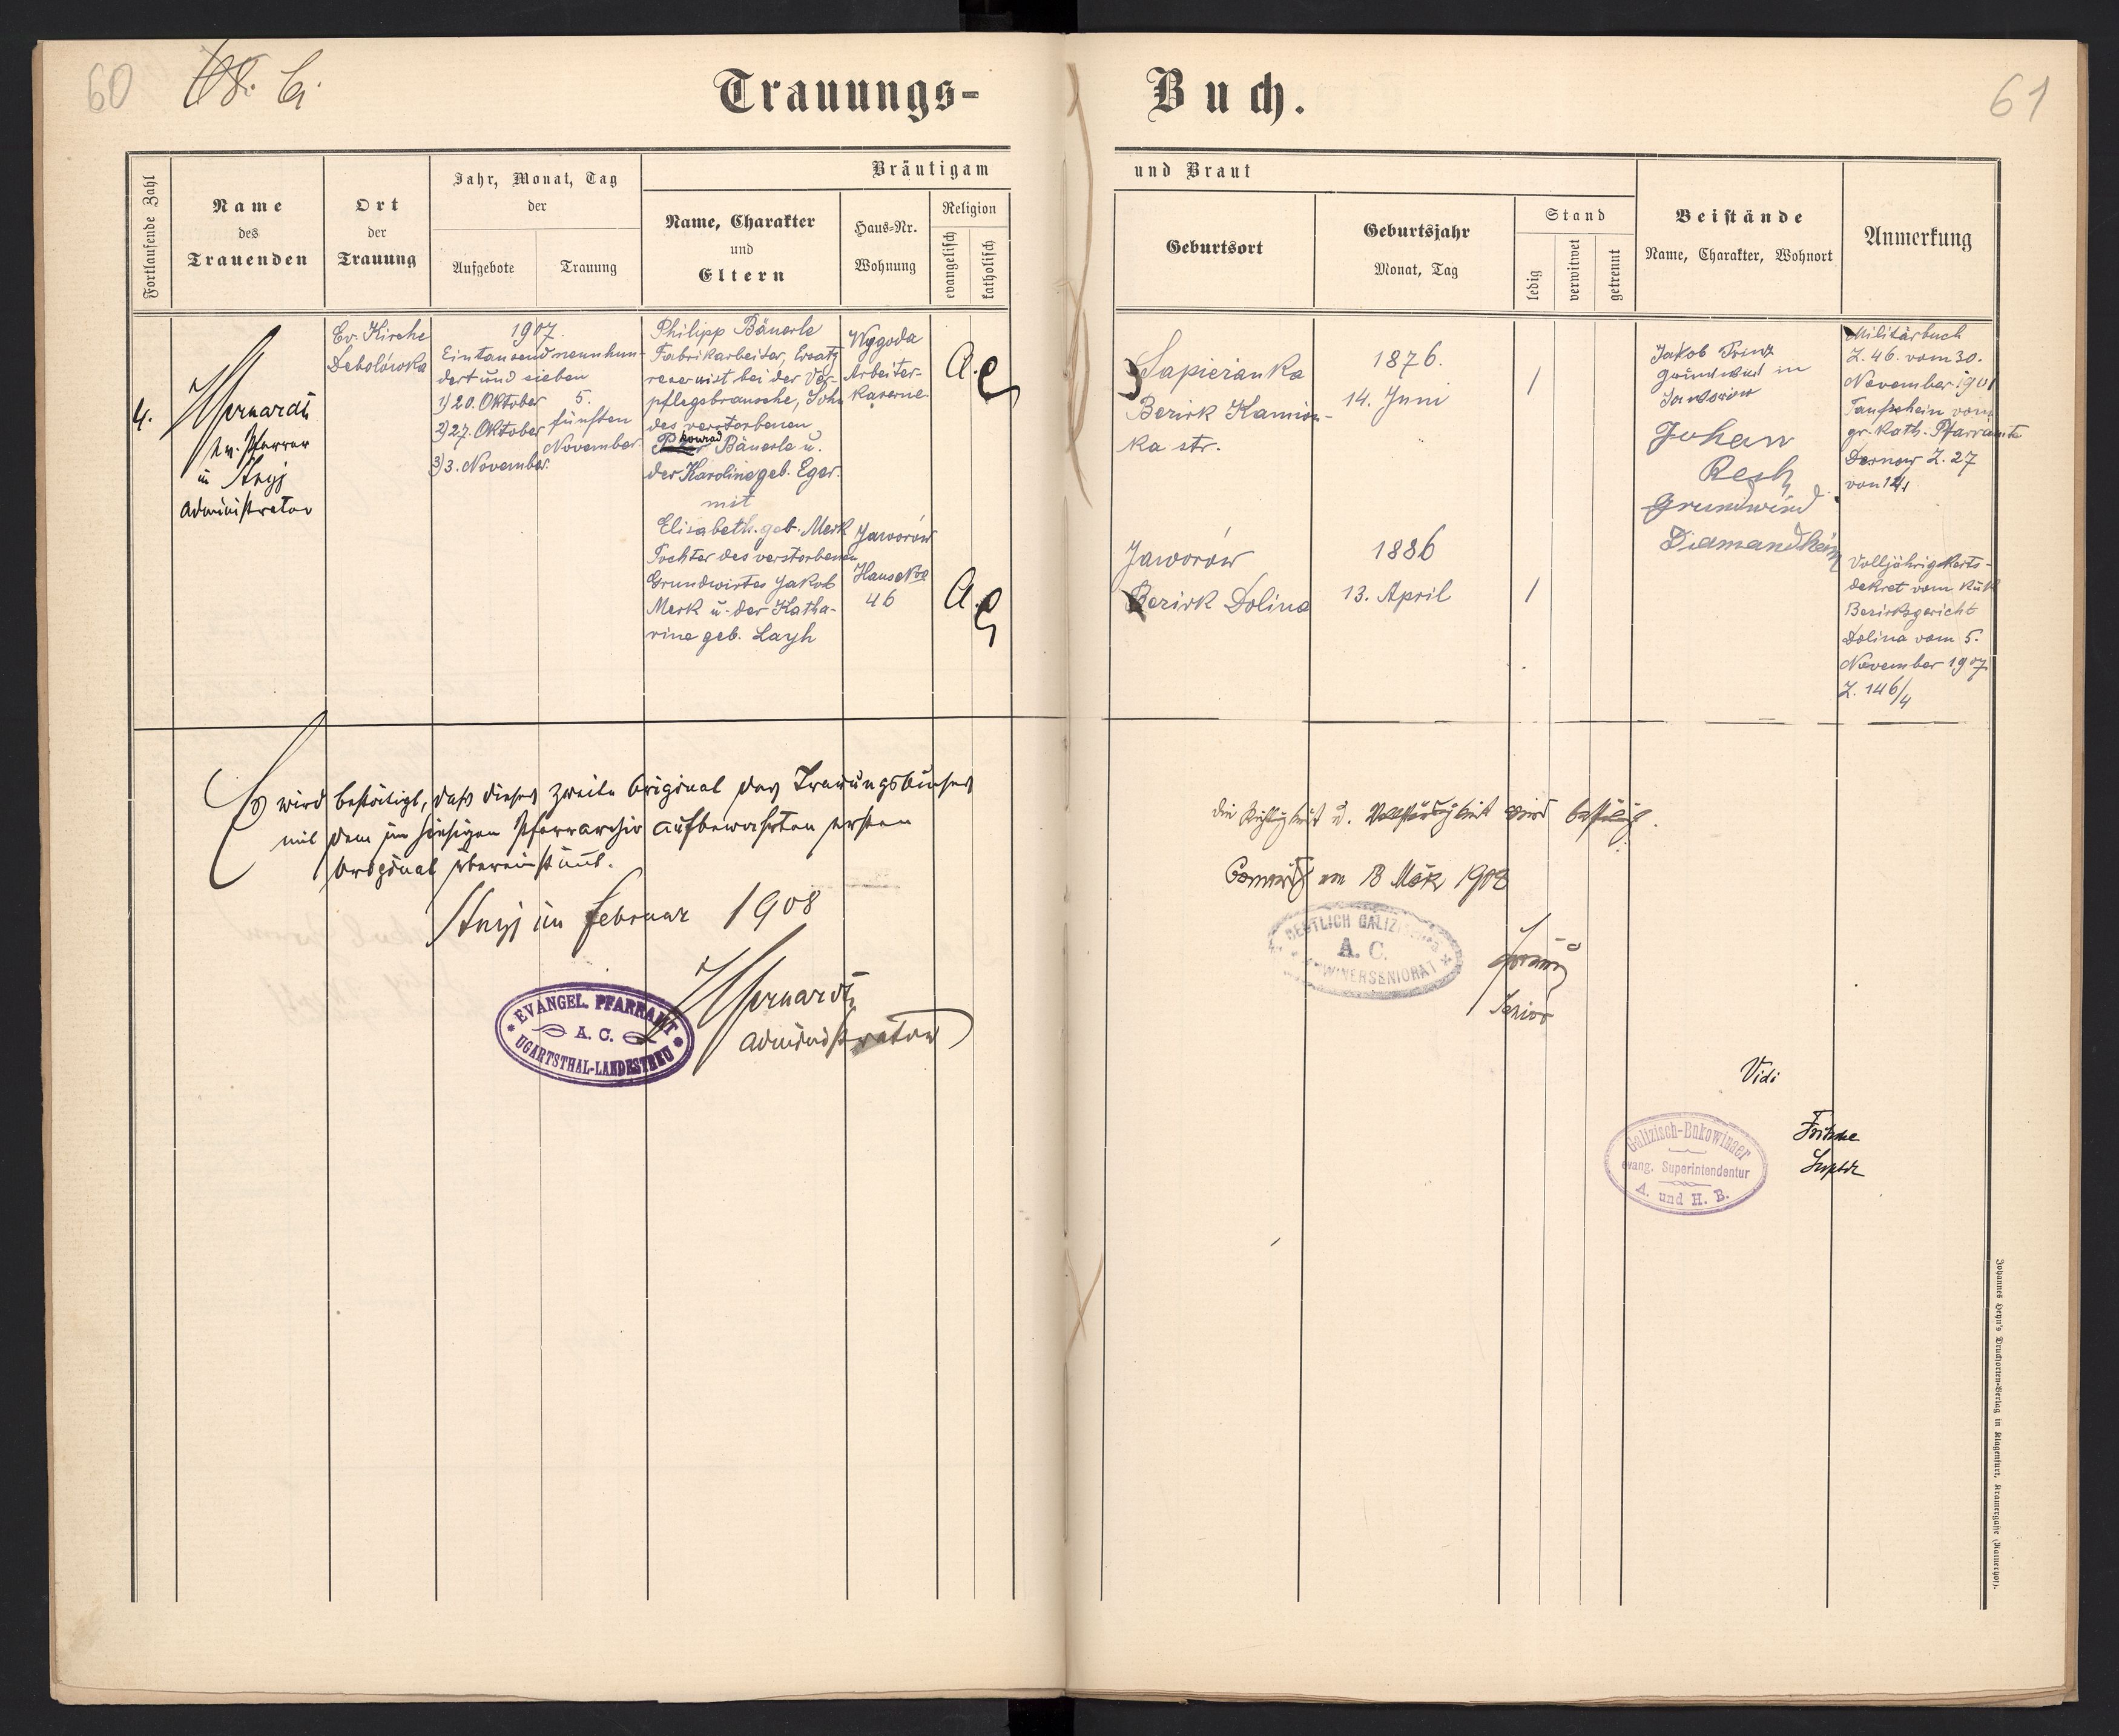 60
Trauungs-
Buch.
61
Bräutigam
und Braut
Fortlaufende Zahl
Name
des
Trauenden
Ort
der
Trauung
Jahr, Monat, Tag
der
Aufgebote
Trauung
Name, Charakter
und
Eltern
Haus-Nr.
Wohnung
Religion
evangelisch
katholisch
Geburtsort
Geburtsjahr
Monat, Tag
Stand
ledig
verwitwet
getrennt
Beistände
Name, Charakter, Wohnort
Anmerkung
4.
ev. Pfarrer
in Stryj
Administrator
Ev. Kirche
Debolówka
1907.
Eintausend neunhun-
dert und sieben
1) 20. Oktober
2) 27. Oktober
3) 3. November.
5.
fünften
November.
Philipp Bäuerle
Fabrikarbeiter, Ersatz
reservist bei der Ver-
pflegsbransche, Sohn
des verstorbenen
Konrad Bäuerle u.
der Karoline geb. Eger.
mit
Elisabeth geb. Merk
Tochter des verstorbenen
Grundwirtes Jakob
Merk u. der Katha-
rine geb. Layh
Wygoda
Arbeiter-
kaserne.
Jaworów
Haus No
46
A.
A.
Sapieżanka
Bezirk Kamion-
ka str.
Jaworów
Bezirk Dolina
1876.
14. Juni
1886
13. April
/
/
Jakob Prinz
Grundwirt in
Jaworów
Johan
Resh
Grundwird
Diamandheim
Militärbuch
Z. 46. vom 30.
November 1901
Taufschein vom
gr. kath. Pfarramte
Dernow Z. 27
von
Volljährigkerts-
dekret vom k.u.k
Bezirksgericht
Dolina vom 5.
November 1907
Z. 146/4
Es wird bestätigt, daß dieses zweite Original des Trauungsbuches
mit dem im hiesigen Pfarrarchiv aufbewahrten ersten
Original übereinstimmt.
Stryj im Februar 1908
Administrator
EVANGEL. PFARRAMT
A. C.
UGARTSTHAL-LANDESTREU
Die Richtigkeit u. Vollständigkeit wird bestätigt.
am 18 März 1908
A. C.
Senior
Vidi
Galizisch-Bukowinaer
evang. Superintendentur
A. und H. B.
Fritsche
Suptdt
Johannes Heyn's Drucksorten-Verlag in Klagenfurt, Kramergasse (Rainerhof).